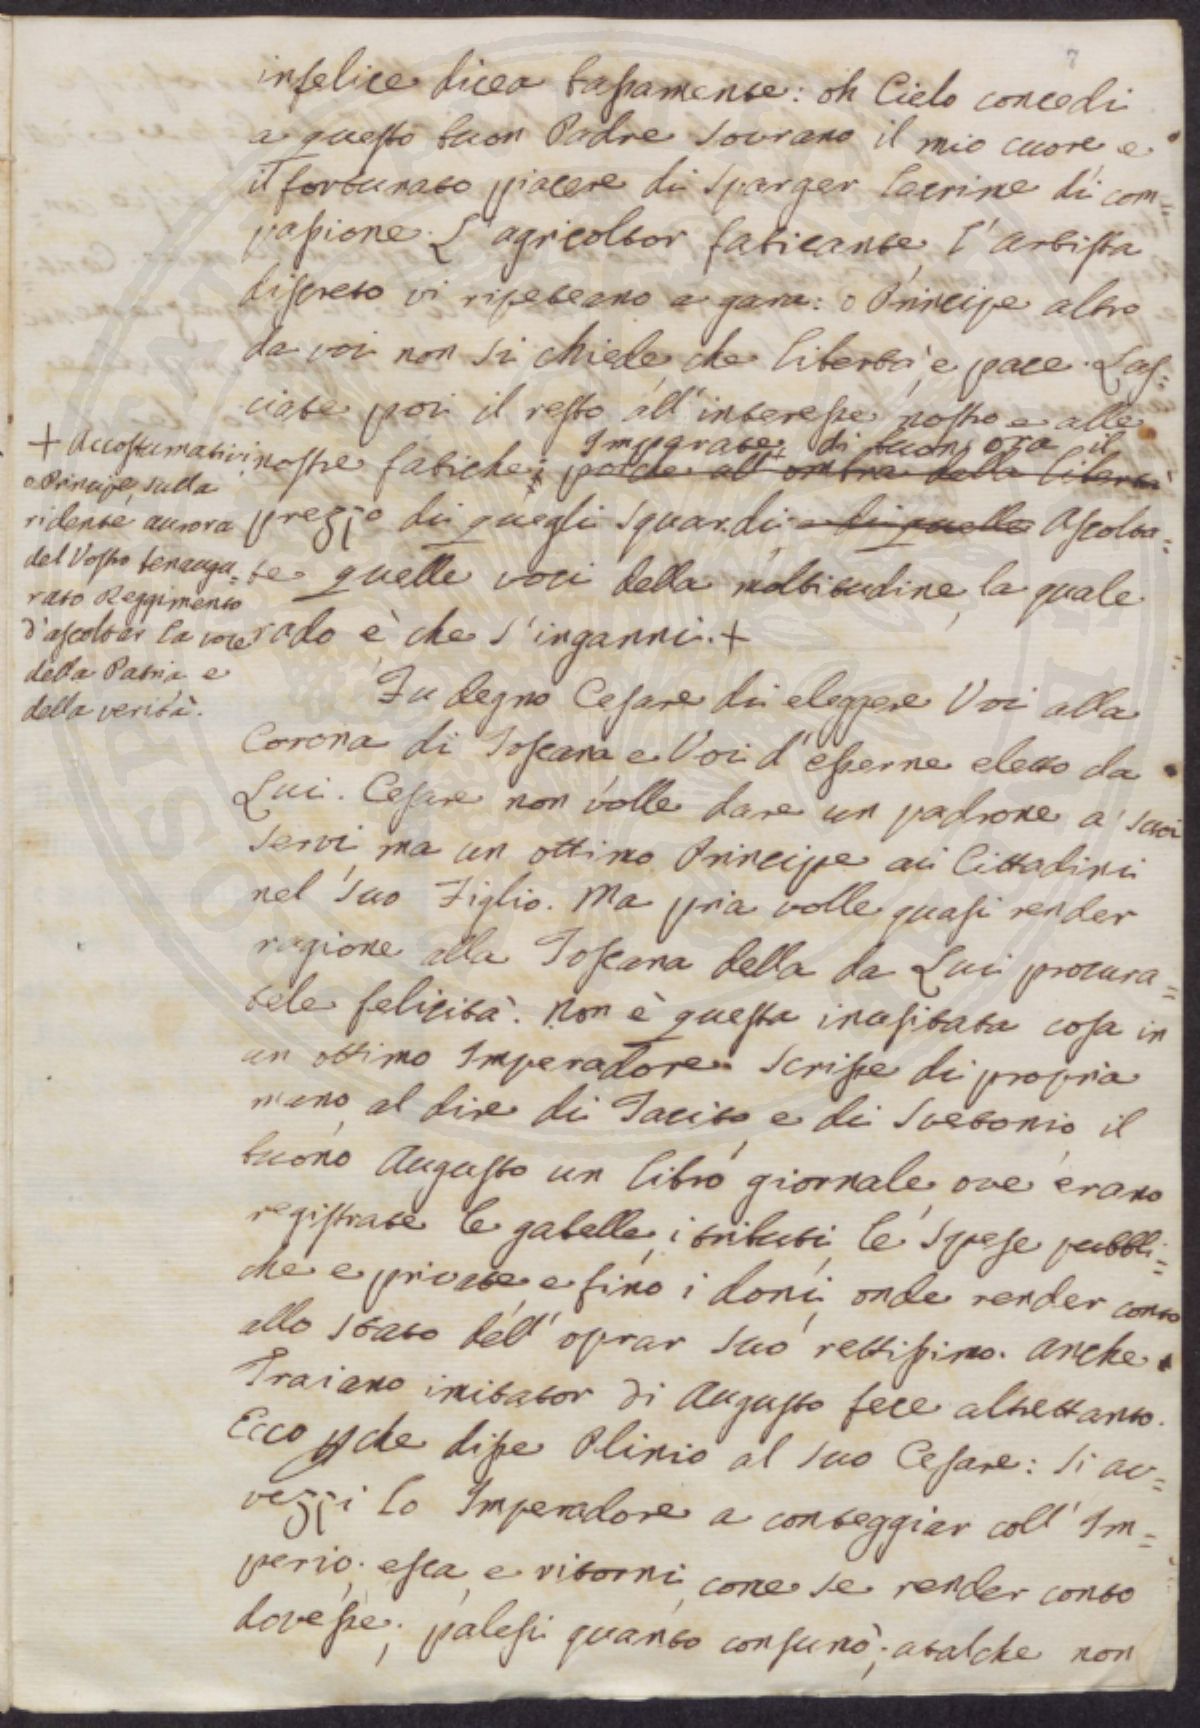 7
infelice dicea bassamente: oh Cielo concedi
a questo buon Padre Sovrano il mio cuore e
il fortunato piacere di sparger lacrime di com=
passione. L'agricoltor faticante, l'artista
discreto vi ripeteano a gara: o Principe altro
da voi non si chiede che libertà, e pace. Las=
ciate poi il resto all'interesse nostro e alle
Imparate di buon ora il
nostre fatiche; poiche all' ombra della libertà
pregio di quegli sguardi, e di quelle Ascolta=
te quelle voci della moltitudine, la quale
rado è che s'inganni.+
+ Accostumativi
o Principe, sulla
ridente aurora
del Vostro benaugu=
rato Reggimento
d'ascoltar la voce
della Patria e
della verità.
Fu degno Cesare di eleggere Voi alla
Corona di Toscana e Voi d'esserne eletto da
Lui. Cesare non volle dare un padrone a' suoi
servi, ma un ottimo Principe ai Cittadini
nel suo Figlio. Ma pria volle quasi render
ragione alla Toscana della da Lui procura=
tele felicità. Non è questa inusitata cosa in
un ottimo Imperadore. Scrisse di propria
mano, al dire di Tacito e di Svetonio, il
buono Augusto un libro giornale, ove erano
registrate le gabelle, i tributi, le spese pubbli=
che e private e fino i doni, onde render conto
allo stato dell'oprar suo rettissimo. Anche
Traiano imitator di Augusto fece altrettanto.
Ecco che disse Plinio al suo Cesare: Si av=
vezzi lo Imperadore a conteggiar coll'Im=
perio; esca, e ritorni, come se render conto
dovesse; palesi quanto consumò; atalche non